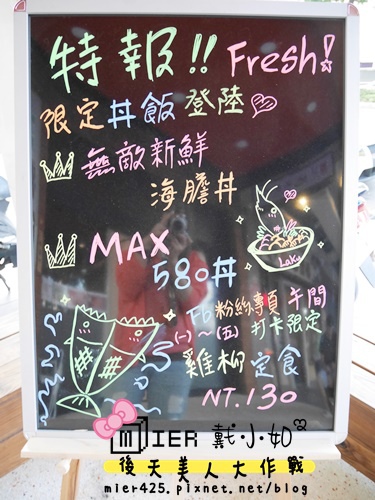 特報!! Fresh!
限定丼飯登陸
無敵新鮮
海膽丼
Laku
MAX
580丼
FB粉絲專頁 午間
(一)~(五) 打卡限定
雞柳定食
NT.130
MIER 戴小如
後天美人大作戰
mier425.pixnet.net/blog